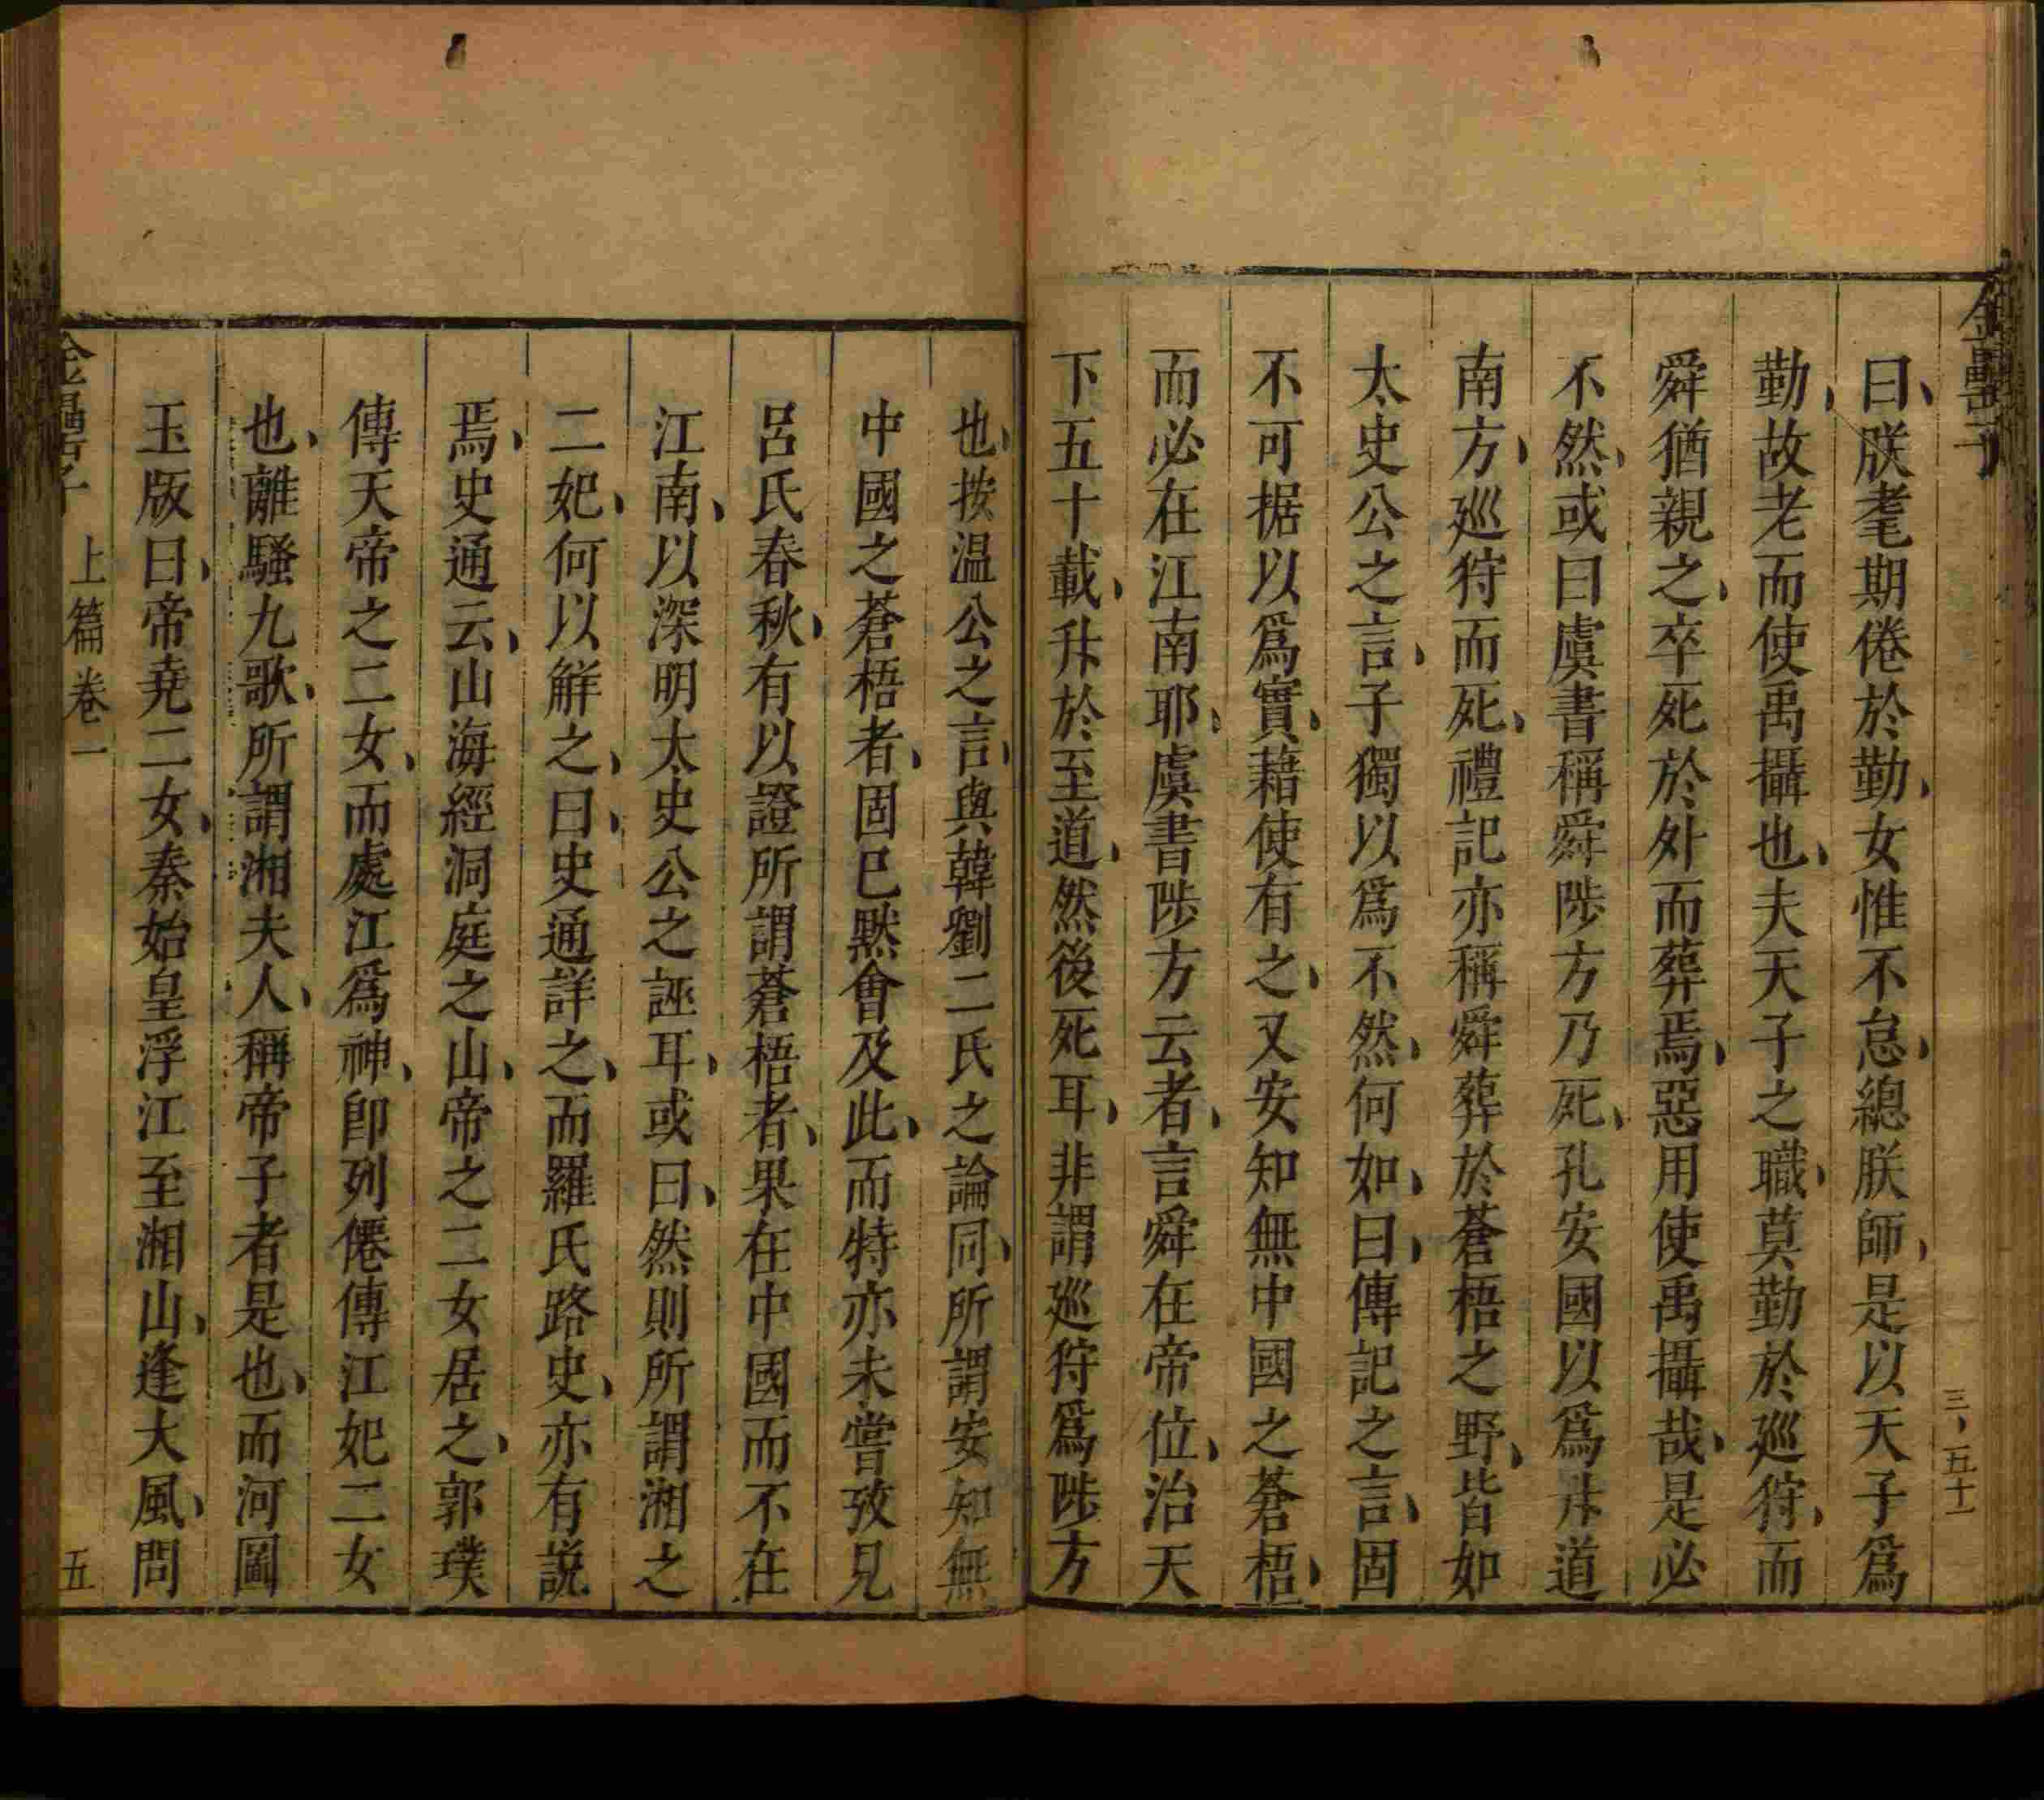 金罍子
三、五十一
曰、朕耄期倦於勤、女惟不怠、總朕師、是以天子爲
勤、故老而使禹攝也、夫天子之職、莫勤於廵狩、而
舜猶親之、卒死於外而葬焉、惡用使禹攝哉、是必
不然、或曰虞書稱舜陟方乃死、孔安國以爲升道
南方、廵狩而死、禮記亦稱舜葬於蒼梧之野、皆如
太史公之言、子獨以爲不然、何如、曰、傳記之言、固
不可据以爲實、藉使有之、又安知無中國之蒼梧、
而必在江南耶、虞書陟方云者、言舜在帝位、治天
下五十載、升於至道、然後死耳、非謂廵狩爲陟方
也、按温公之言、與韓劉二氏之論同、所謂安知無
中國之蒼梧者、固已黙會及此、而特亦未嘗攷見
呂氏春秋、有以證所謂蒼梧者、果在中國而不在
江南、以深明太史公之誣耳、或曰、然則所謂湘之
二妃、何以解之、曰、史通詳之、而羅氏路史、亦有説
焉、史通云、山海經洞庭之山、帝之二女居之、郭璞
傳天帝之二女、而處江爲神、卽列僊傳江妃二女
也、離騷九歌、所謂湘夫人、稱帝子者是也、而河圖
玉版曰、帝堯二女、秦始皇浮江至湘山、逢大風、問
金罍子
上篇卷一
五